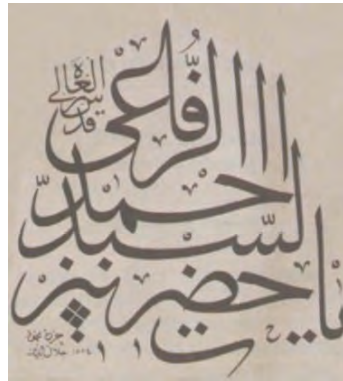 يا حضرت پير
السيد
احمد
الرفاعى
قدس سره العالى